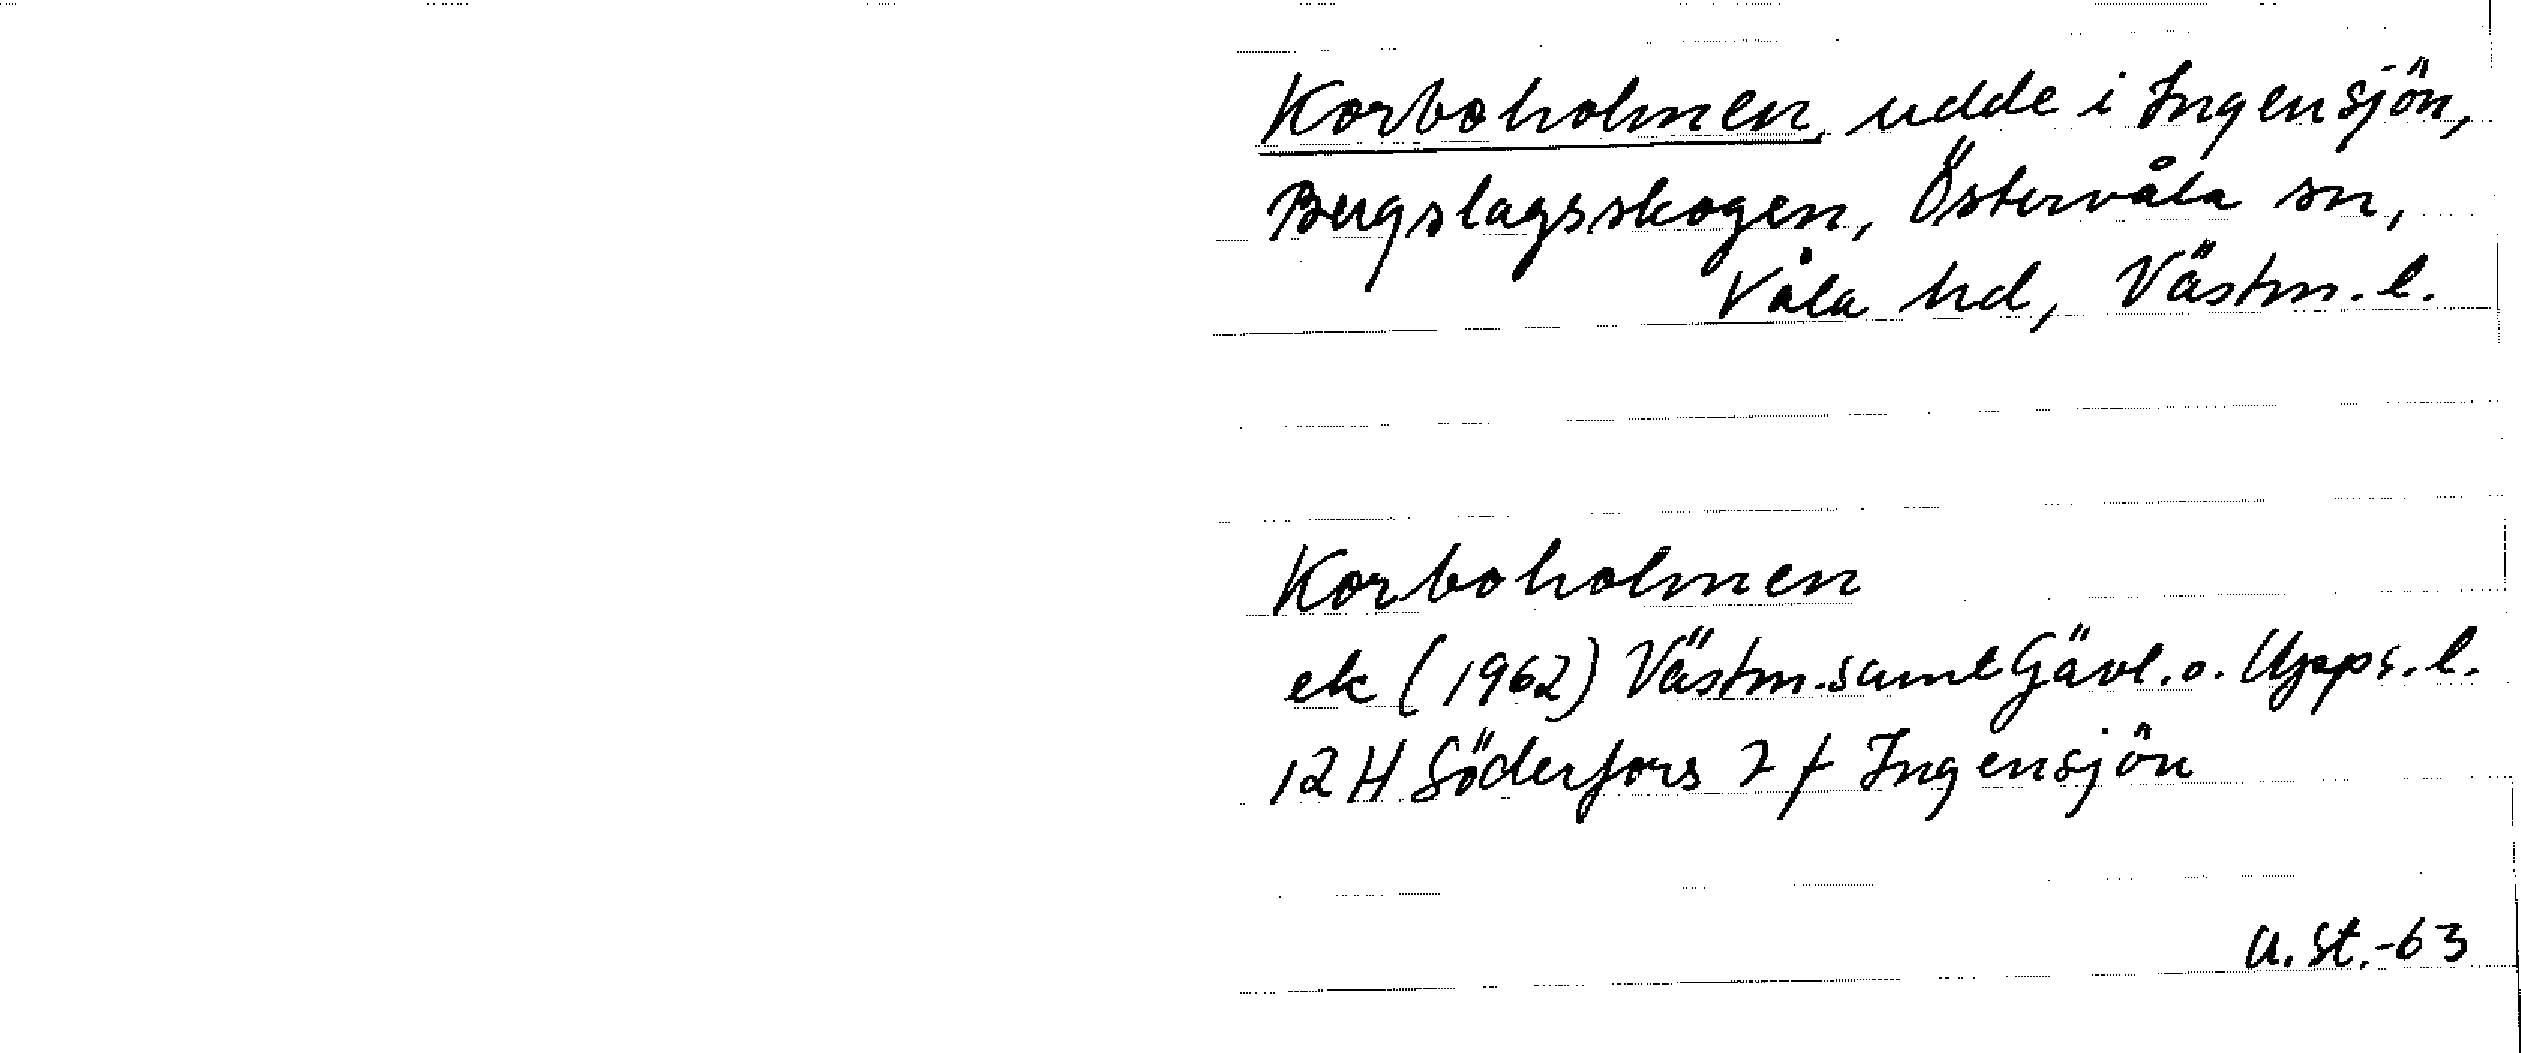 Korboholmen, udde i Ingensjön,
Bergslagsskogen, Östervåla sn,
Våla hd, Västm. l.
Korboholmen
ek (1962) Västm. samt Gävl. o. Upps. l.
12 H Söderfors 7 f Ingensjön
U. St. -63